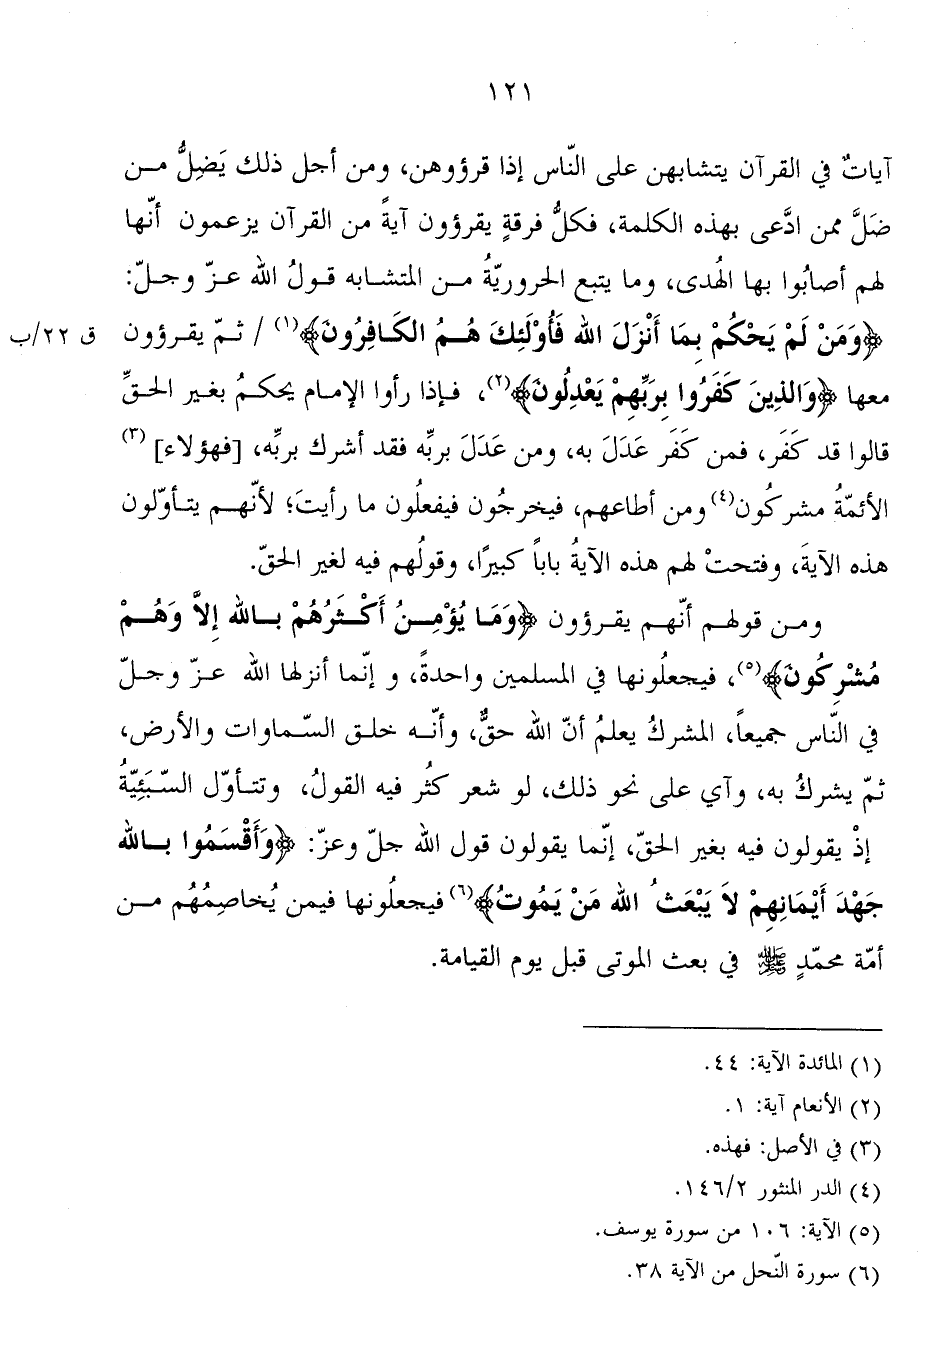 ١٢١
آياتٌ في القرآن يتشابهن على النّاس إذا قرؤوهن، ومن أجل ذلك يَضِلُّ مـن
ضَلَّ ممن ادَّعى بهذه الكلمة، فكلُّ فرقةٍ يقرؤون آيةً من القرآن يزعمون أنّها
لهم أصابُوا بها الهُدى، وما يتبع الحروريّةُ مـن المتشابه قـولُ الله عـزّ وجلّ:
﴿وَمَنْ لَمْ يَحْكُمْ بِمَا أَنْزَلَ الله فَأُوْلَئِكَ هُـمُ الكَـافِرُونَ﴾(١) / ثـمّ يقـرؤون ق ٢٢/ب
معها ﴿وَالذِينَ كَفَرُوا بِرَبِّهِمْ يَعْدِلُونَ﴾(٢)، فـإذا رأوا الإمـام يحكـمُ بغـير الحـقِّ
قالوا قد كَفَر، فمن كَفَر عَدَلَ به، ومن عَدَلَ بربِّه فقد أشرك بربِّه، [فهؤلاء] (٣)
الأئمّةُ مشركُون(٤) ومن أطاعهم، فيخرجُون فيفعلُون ما رأيتَ؛ لأنّهـم يتـأوّلون
هذه الآيةَ، وفتحتْ لهم هذه الآيةُ باباً كبيرًا، وقولُهم فيه لغير الحقّ.
ومـن قولهـم أنّهـم يقـرؤون ﴿وَمَـا يُؤْمِـنُ أَكْـثَرُهُمْ بـالله إلاَّ وَهُـمْ
مُشْرِكُونَ﴾(٥)، فيجعلُونها في المسلمين واحدةً، و إنّما أنزلها الله عـزّ وجـلّ
في النّاس جميعاً، المشركُ يعلمُ أنّ الله حقٌّ، وأنّـه خلـق السّـماوات والأرض،
ثمّ يشركُ به، وآي على نحو ذلك، لو شعر كثُر فيه القولُ، وتتـأوّل السّبَئِيّةُ
إذْ يقولون فيه بغير الحقّ، إنّما يقولون قول الله جلّ وعزّ: ﴿وَأَقْسَمُوا بـالله
جَهْدَ أَيْمَانِهِمْ لاَ يَبْعَثُ الله مَنْ يَمُوتُ﴾(٦) فيجعلُونها فيمن يُخاصِمُهُم مـن
أمّة محمّدٍ ﷺ في بعث الموتى قبل يوم القيامة.
(١) المائدة الآية: ٤٤.
(٢) الأنعام آية: ١.
(٣) في الأصل: فهذه.
(٤) الدر المنثور ١٤٦/٢.
(٥) الآية: ١٠٦ من سورة يوسف.
(٦) سورة النّحل من الآية ٣٨.